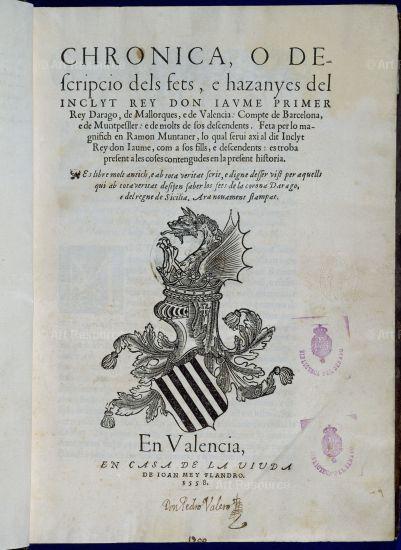 CHRONICA, O DE-
scripcio dels fets, e hazanyes del
INCLYT REY DON IAVME PRIMER
Rey Darago, de Mallorques, e de Valencia: Compte de Barcelona,
e de Muntpesller: e de molts de sos descendents. Feta per lo ma-
gnifich en Ramon Muntaner, lo qual serui axi al dit Inclyt
Rey don Iaume, com a sos fills, e descendents: es troba
present a les coses contengudes en la present historia.
Es libre molt antich, e ab tota veritat scrit, e digne desser vist per aquells
qui ab tota veritat desijen saber los fets de la corona Darago,
e del regne de Sicilia. Ara nouament stampat.
En Valencia,
EN CASA DE LA VIUDA
DE IOAN MEY FLANDRO.
1558.
Don Pedro Valero